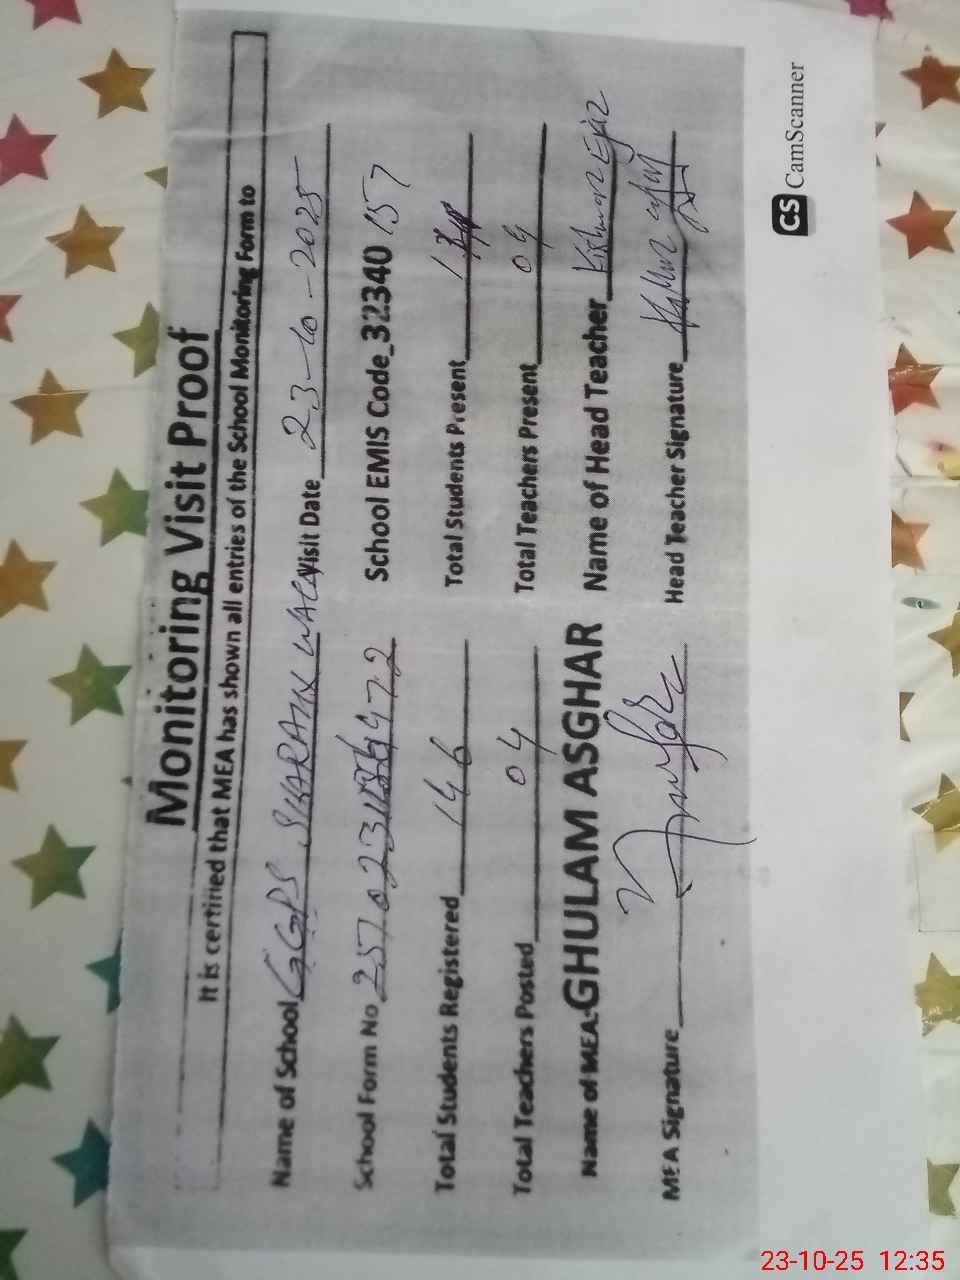 Monitoring Visit Proof
It is certified that MEA has shown all entries of the School Monitoring Form to
Name of School GGPS Visit Date 23-10-2025
School Form No School EMIS Code_32340 157
Total Students Registered 146 Total Students Present
Total Teachers Posted 04 Total Teachers Present 04
Name of MEA:-GHULAM ASGHAR Name of Head Teacher Kishwar
MEA Signature Head Teacher Signature
CS CamScanner
23-10-25 12:35